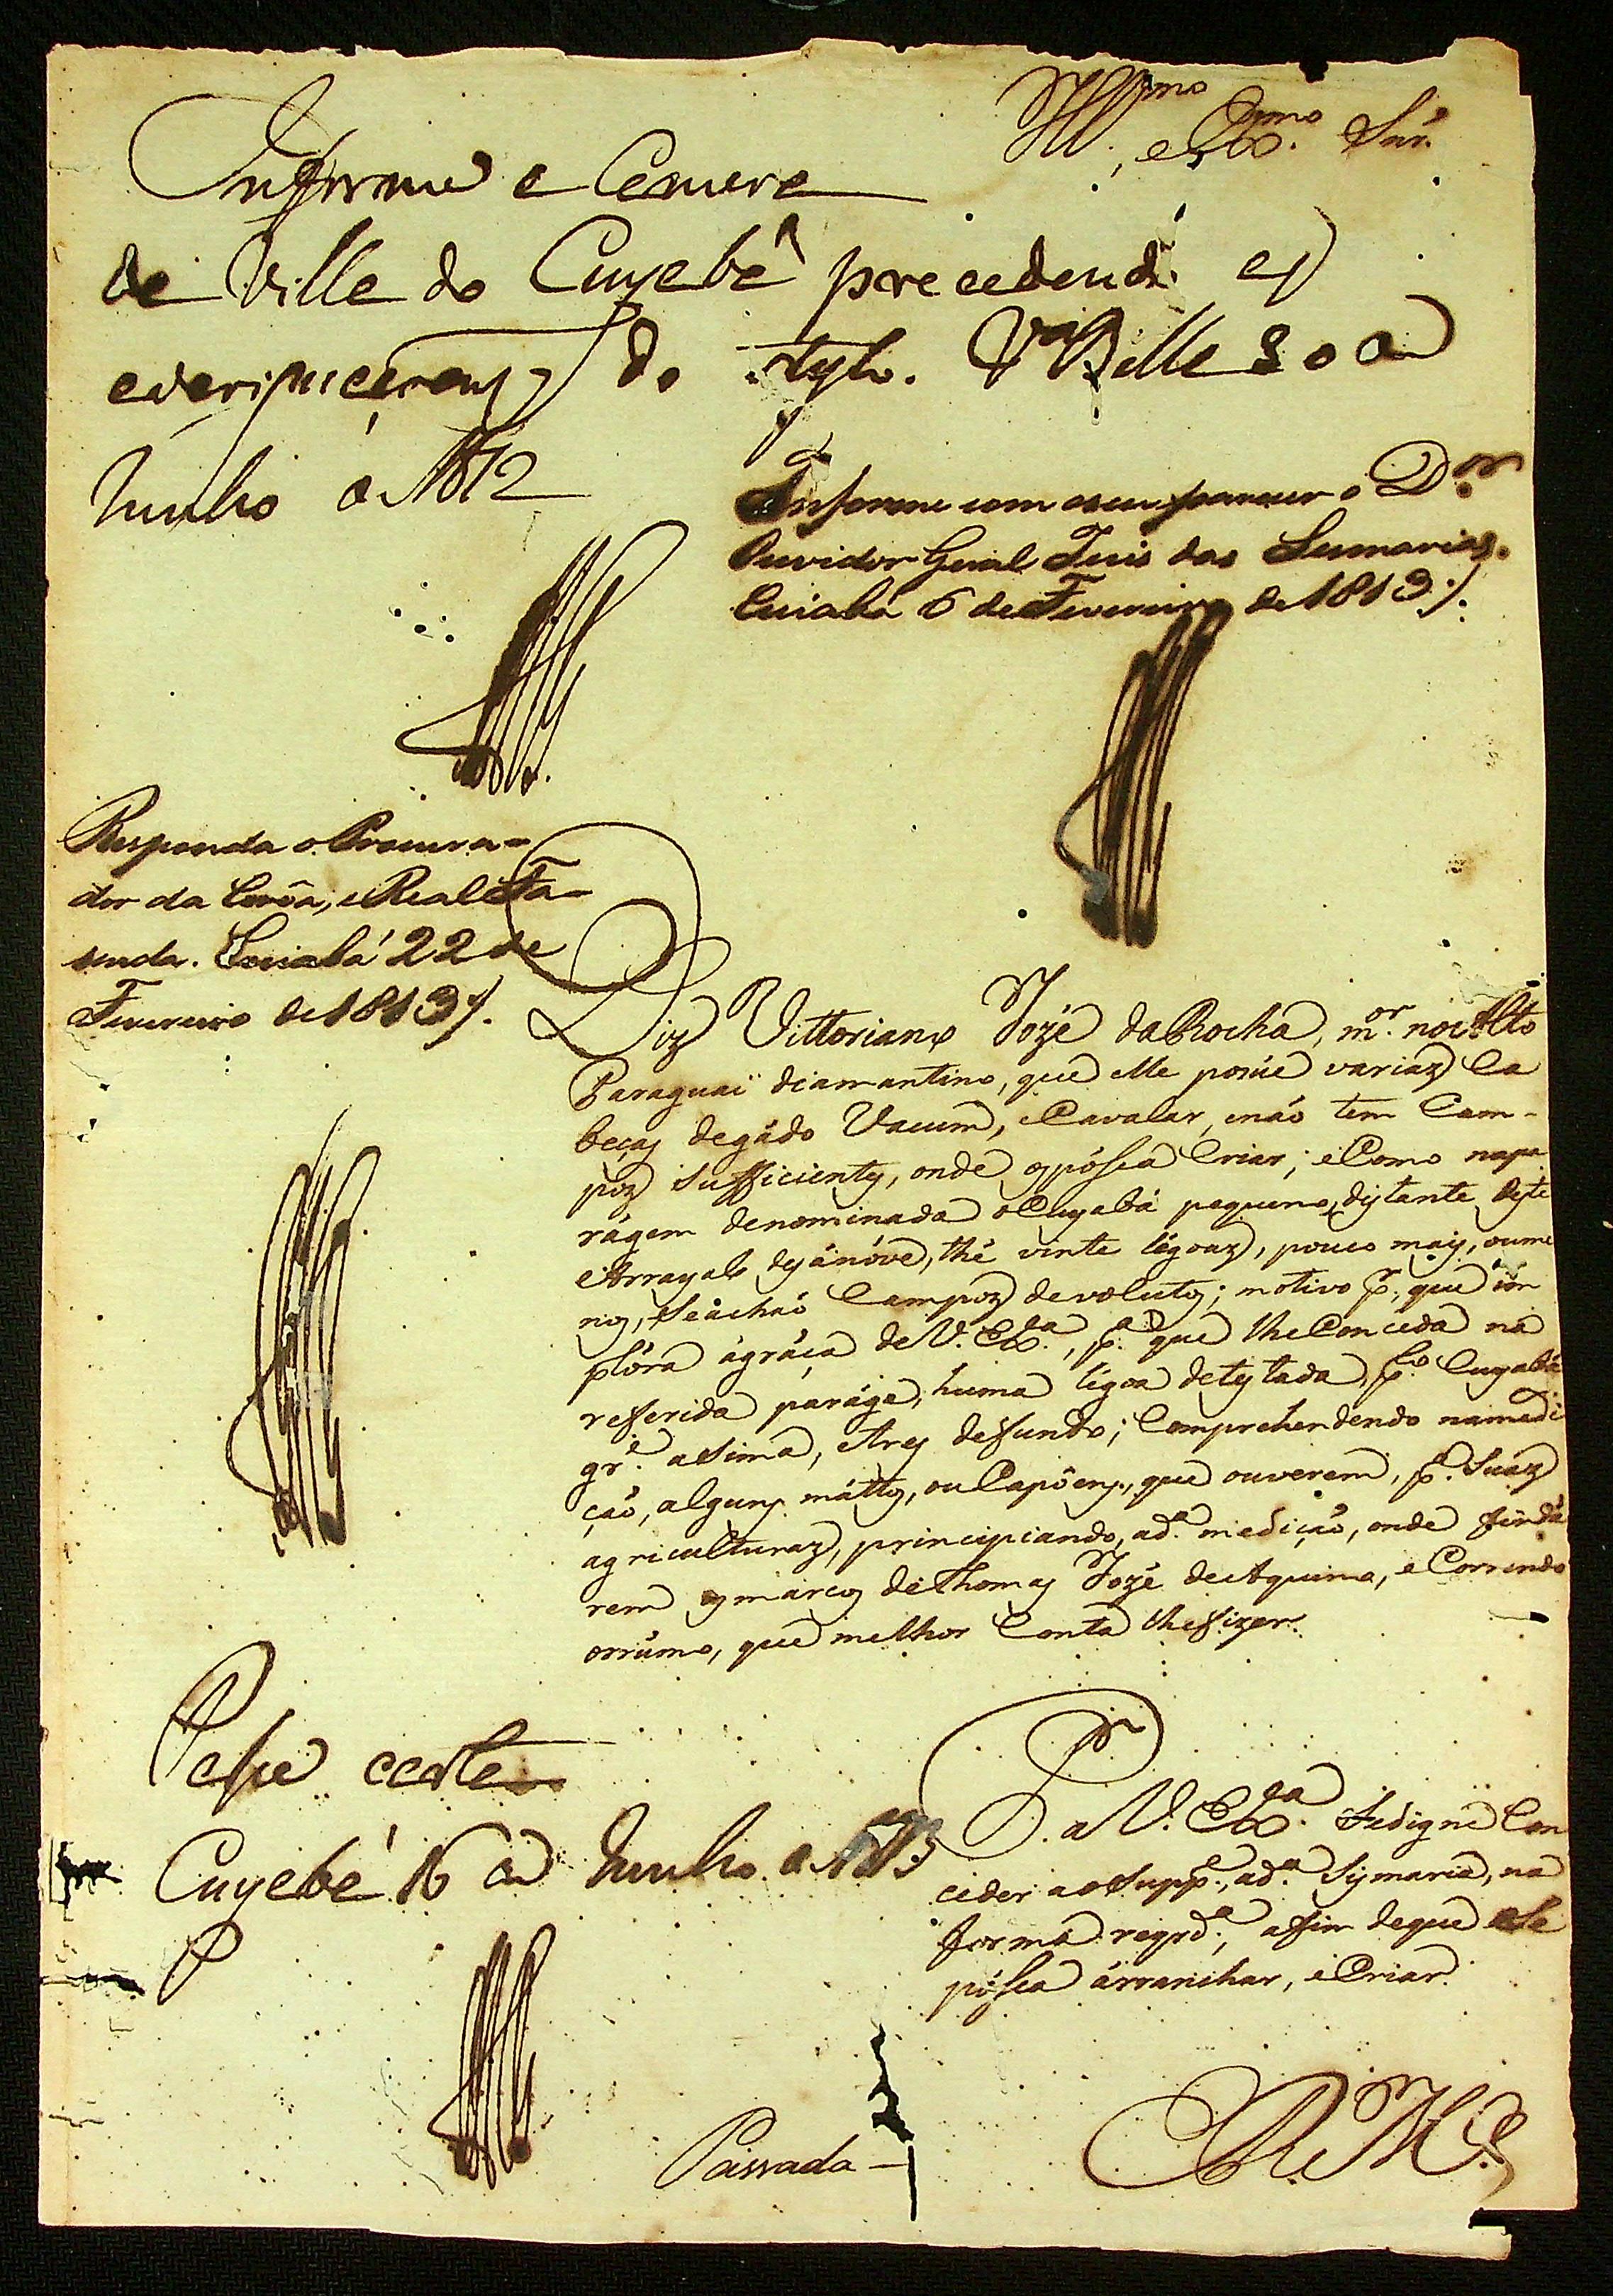 Ill.mo, e Ex.mo Snr.
Informe a Camara
da Villa do Cuyabá precedend. as
averiguaçoens do stylo. V.a Bella 8 de
Junho de 1812
Informe com o seu parecer o D.or
Ouvidor Geral Juis das Sesmarias.
Cuiabá 6 de Fevereiro de 1813 /.
Responda o Procura-
dor da Corôa, e Real Fa-
senda. Cuiabá 22 de
Fevereiro de 1813 /.
Diz Vittoriano Jozé da Rocha, m.or no Alto
Paraguai diamantino, que elle posúe variaz Ca
beças de gádo Vacum, e Cavalar, e náo tem Cam-
poz sufficientes, onde os póssa Criar; e Como na pa
rágem denominada o Cuyabá pequeno, distante deste
Arrayal desánóve, thé vinte légoaz, pouco mais, ou me
nos, se ácháo Campoz devolutos; motivo p.r que im
plóra ágráça de V. Ex.a, p.a que lhe Conceda na
referida paráge, huma légoa de testada, p.lo Cuyabá
gr.e assima, e tres de fundo; Comprehendendo na medi
çáo, alguns máttos, ou Capôens, que ouverem, p.a Suaz
agriculturaz, principiando, a d.a mediçáo, onde findá
rem os márcos de Thomas Jozé de Aquino, e Correndo
o rrúmo, que melhor Conta lhe fizer.
P. a V. Ex.a Se digne Con
ceder ao Supp.e, a d.a Sismaria, na
forma reqrd.a, afim de que se
póssa árranchar, e Criar.
Passe carta
Cuyabá 16 de Junho de 1813
E R. M.ce
Passada